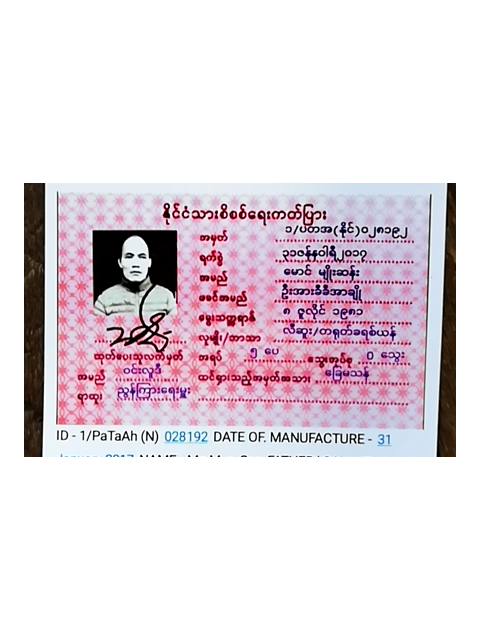 နိုင်ငံသားစိစစ်ရေးကတ်ပြား
အမှတ် ၁/ပတအ(နိုင်)၀၂၈၁၉၂
ရက်စွဲ ၃၁ဇန်နဝါရီ၂၀၁၇
အမည် မောင် မျိုးဆန်း
ဖခင်အမည် ဦးအားခီခီအာချို
မွေးသက္ကရာဇ် ၈ ဇူလိုင် ၁၉၈၁
လူမျိုး/ဘာသာ လီဆူး/တရုတ်ခရစ်ယန်
အရပ် ၅ ပေ သွေးအုပ်စု O သွေး
ထင်ရှားသည့်အမှတ်အသား
ထုတ်ပေးသူလက်မှတ်
အမည် ဝင်းလူဒီ
ရာထူး ညွှန်ကြားရေးမှူး
ID - 1/PaTaAh (N) 028192 DATE OF. MANUFACTURE - 31